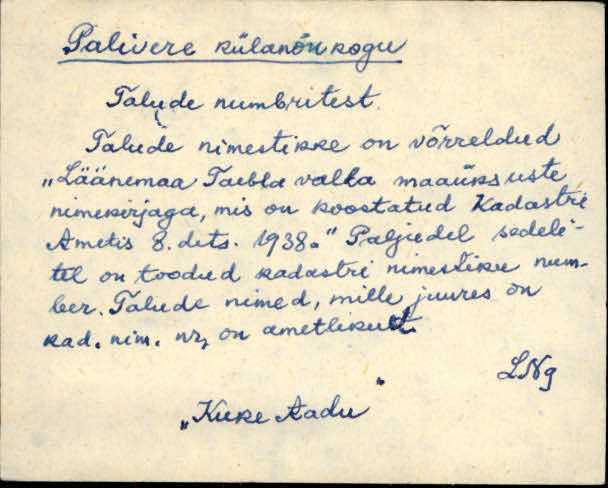 Palivere külanõukogu
Talude numbritest.
Talude nimestikke on võrreldud
„Läänemaa Taebla valla maaüksuste
nimekirjaga, mis on koostatud Kadastri
Ametis 8. dets. 1938." Paljudel sedeli-
tel on toodud kadastri nimestiku num-
ber. Talude nimed, mille juures on
kad. nim. nr, on ametlikud.
LNg
„Kuke Aadu"